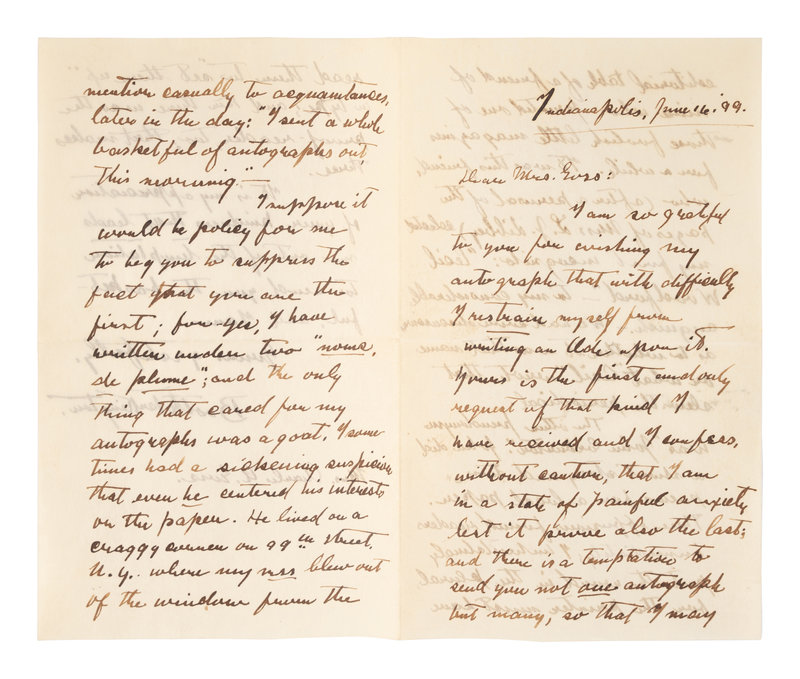 Indianapolis, June 16. '99.
Dear Mrs.
I am so grateful
to you for wishing my
autograph that with difficulty
I restrain myself from
writing an Ode upon it.
Yours is the first and only
request of that kind I
have received and I confess,
without caution, that I am
in a state of painful anxiety
lest it prove also the last;
and there is a temptation to
send you not one autograph
but many, so that I may
mention casually to acquaintances,
later in the day: "I sent a whole
basketful of autographs out,
this morning."—
I suppose it
would be policy for me
to beg you to suppress the
fact that you are the
first; for yes, I have
written under two "noms,
de plume"; and the only
thing that cared for my
autographs was a goat. I some
times had a sickening suspicion
that even he centered his interests
on the paper. He lived on a
craggy corner on 99th street,
N.Y. where my mss blew out
of the window from the